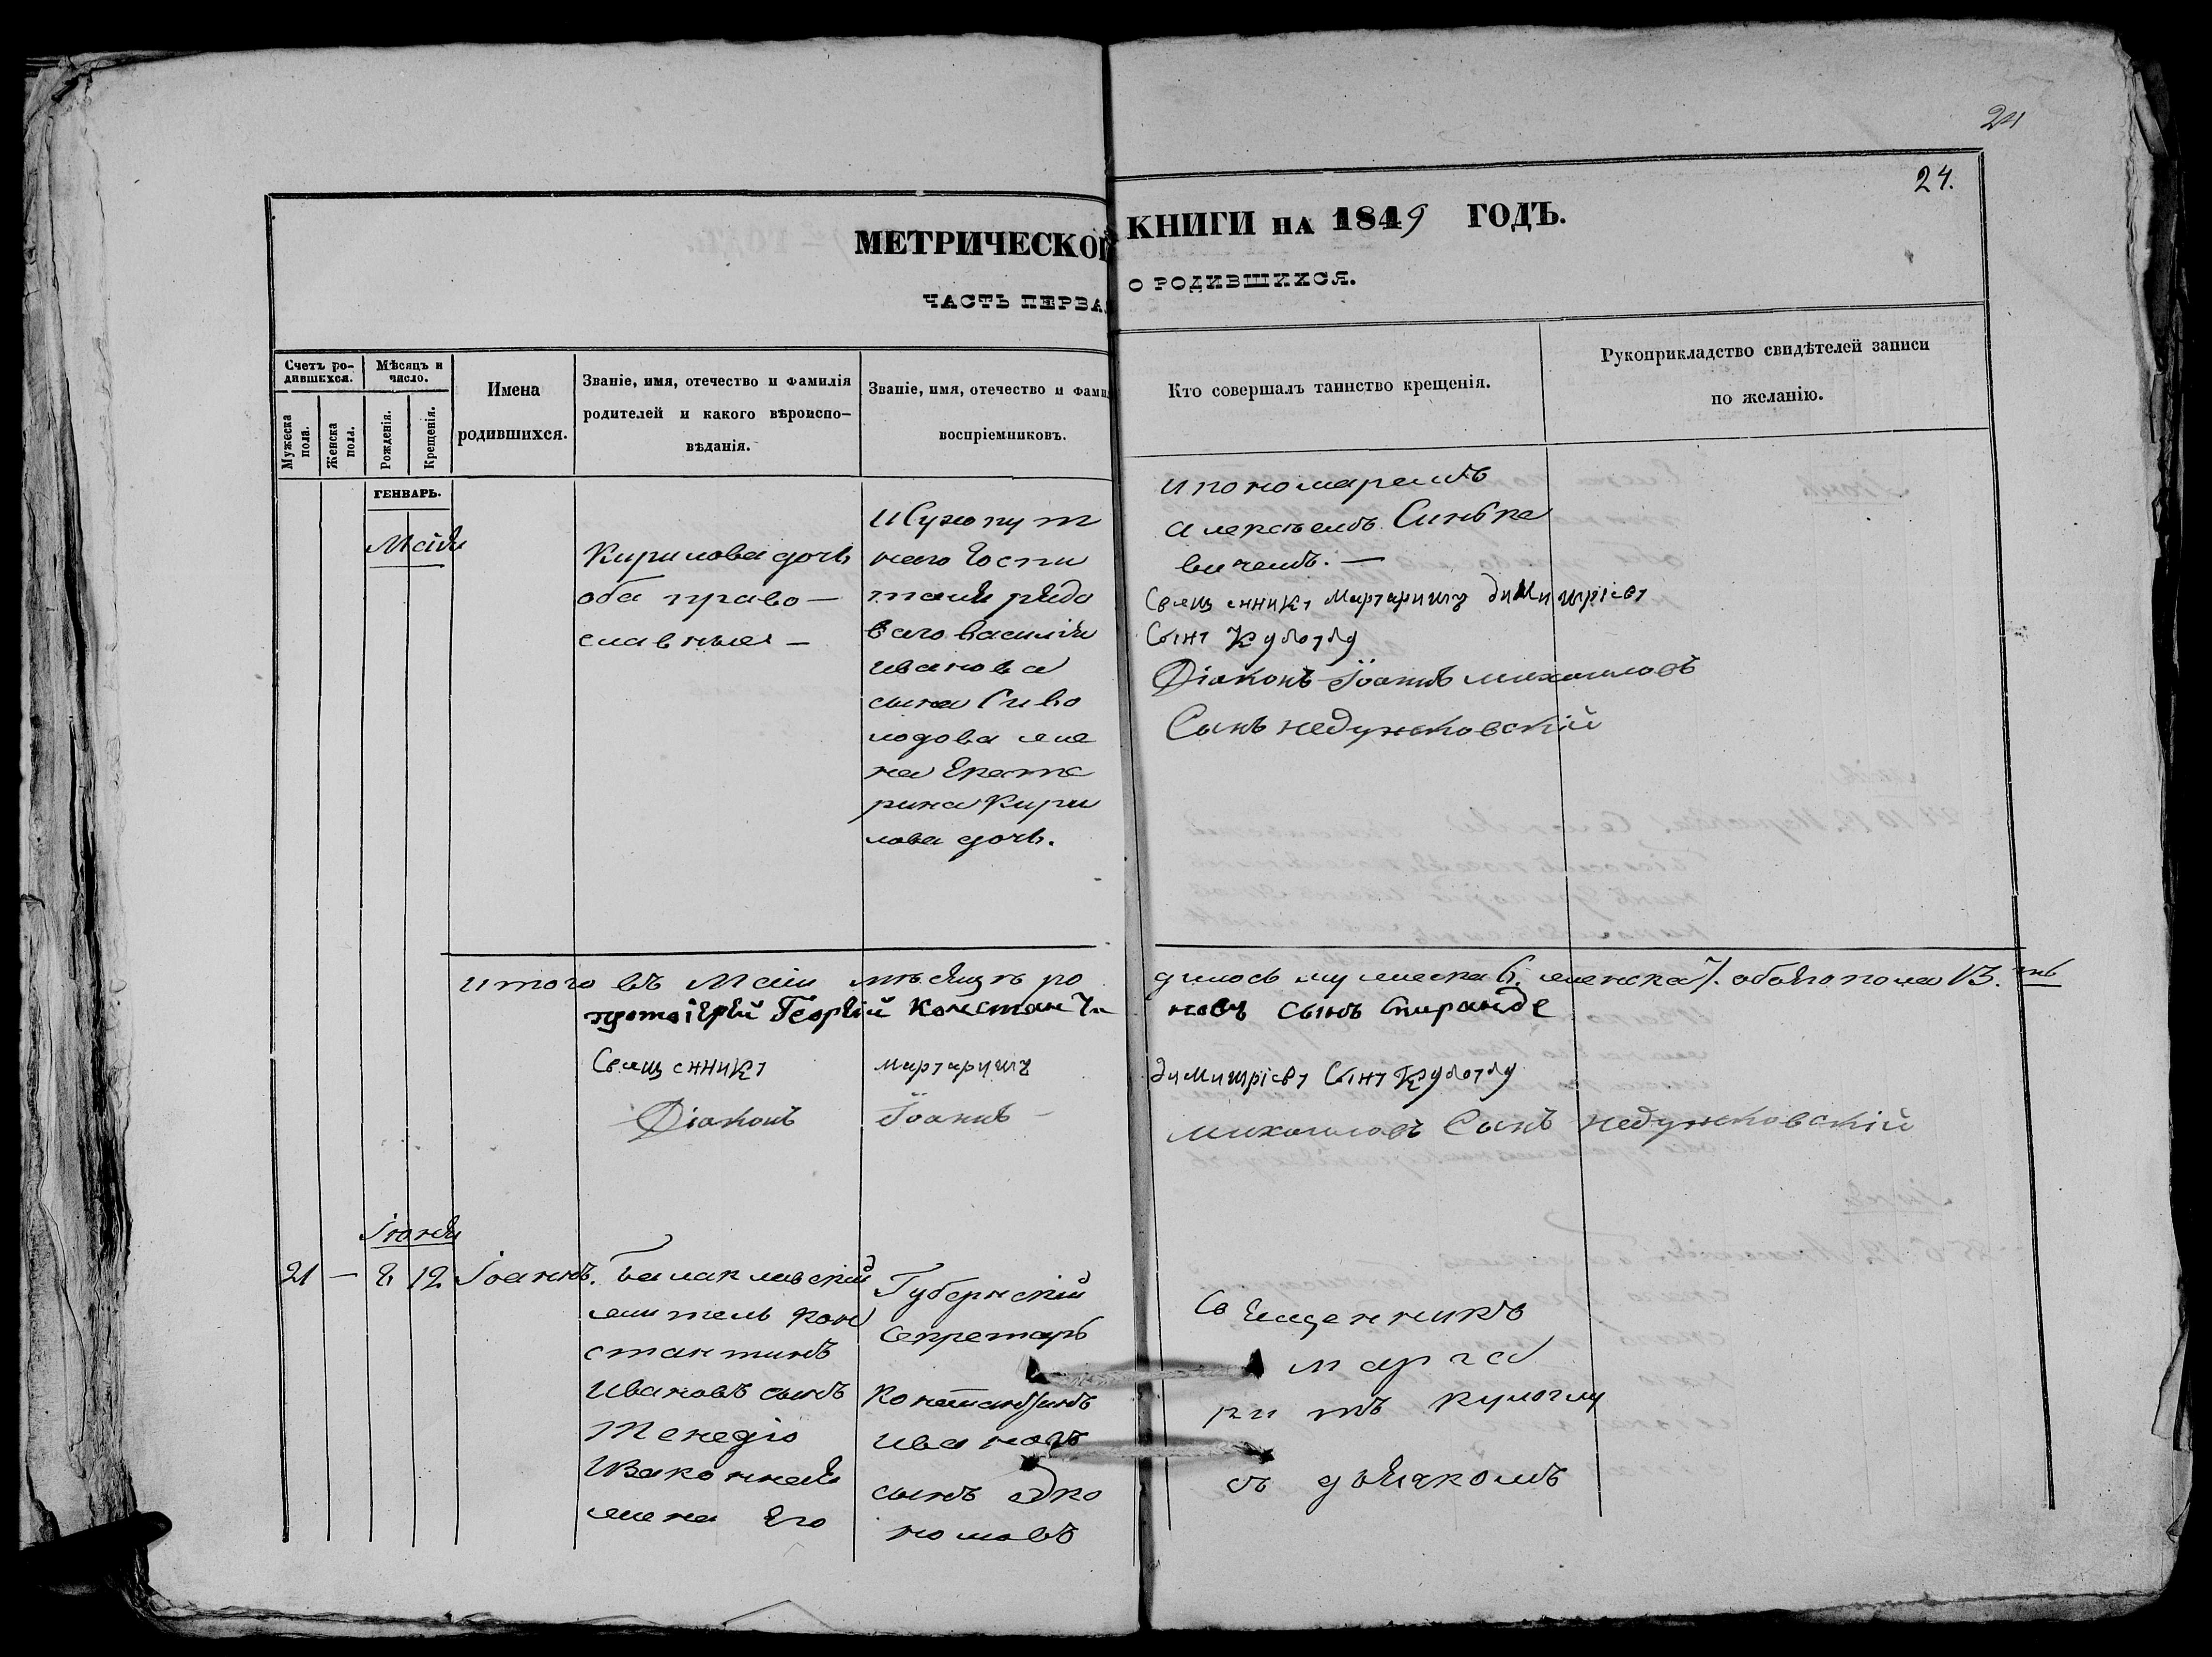 24
24.
МЕТРИЧЕСКОЙ КНИГИ НА 1849 ГОДЪ.
ЧАСТЬ ПЕРВАЯ О РОДИВШИХСЯ.
Счетъ родившихся.
Мужеска пола.
Женска пола.
Мѣсяцъ и число.
Рожденія.
Крещенія.
Имена
родившихся.
Званіе, имя, отечество и фамилія
родителей и какого вѣроиспо-
вѣданія.
Званіе, имя, отечество и фами
воспріемниковъ.
Кто совершалъ таинство крещенія.
Рукоприкладство свидѣтелей записи
по желанію.
ГЕНВАРЬ.
Маія
Кирилова дочь
оба право—
славные—
и Сухопут
наго Госпи
таля рядо
ваго Василія
Иванова
сына Сиво
лодова же
на Екате
рина Кири
лова дочь.
и пономаремъ
Алексѣемъ Синьке
вичемъ.—
Священникъ Маргаритъ Димитріевъ
Сынъ Кулоглу
Діаконъ Іоаннъ Михаиловъ
Сынъ Недужковскій
итого въ Маіи мѣсяцѣ родилось мужеска 6. женска 7. обоего пола 13.ть
протоіерей Георгій Константиновъ сынъ Спиранде
Священникъ Маргаритъ Димитріевъ Сынъ Кулоглу
Діаконъ Іоаннъ Михаиловъ Сынъ Недужковскій
Іюня
21 — 8 12 Іоаннъ.
Балаклавскій
житель Кон
стантинъ
Ивановъ сынъ
Тенедіо
Изаконная
жена Его
Губернскій
Секретарь
Константинъ
Ивановъ
сынъ Эко
номовъ
Священникъ
Марга
ритъ Кулоглу
съ дьячкомъ